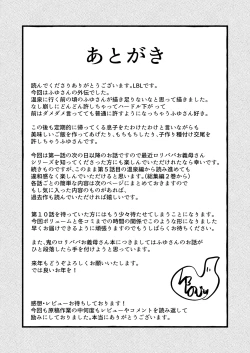 あとがき
読んでくださりありがとうございます。LBLです。
今回はふゆさんの外伝でした。
温泉に行く前の頃のふゆさんが描き足りないなと思って描きました。
なし崩しにどんどん許しちゃってハードル下がって
前はダメダメ言ってても普通に許すようになっちゃうふゆさん好き。
この後も定期的に帰ってくる息子をたわけたわけと言いながらも
美味しいご飯を作ってあげたり、もちもちしたり、子作り種付け交尾を
許しちゃうふゆさんです。
今回は第一話の次の日以降のお話ですので最近ロリババお義母さん
シリーズを知ってくださった方にも楽しんでいただけたなら幸いです。
もっと気に入っていただけたなら、
もし気に入っていただけたなら、
過去作も読んでいただければ嬉しいです。
第１０話を待っていた方にはもう少々待たせてしまうことになります。
今回のボリュームと冬コミまでの時間の関係で今回は外伝になりました。
早くお届けできるように頑張りますのでもうしばらくお待ちください。
また、鬼のロリババお義母さん本につきましてはふゆさんのお話が
ひと段落したら手を付けようと思っています。
来年もどうぞよろしくお願いいたします。
では良いお年を！
感想・レビューお待ちしております！
今回も原稿作業の中何度もレビューやコメントを読み返して
励みにしておりました。本当にありがとうございます。